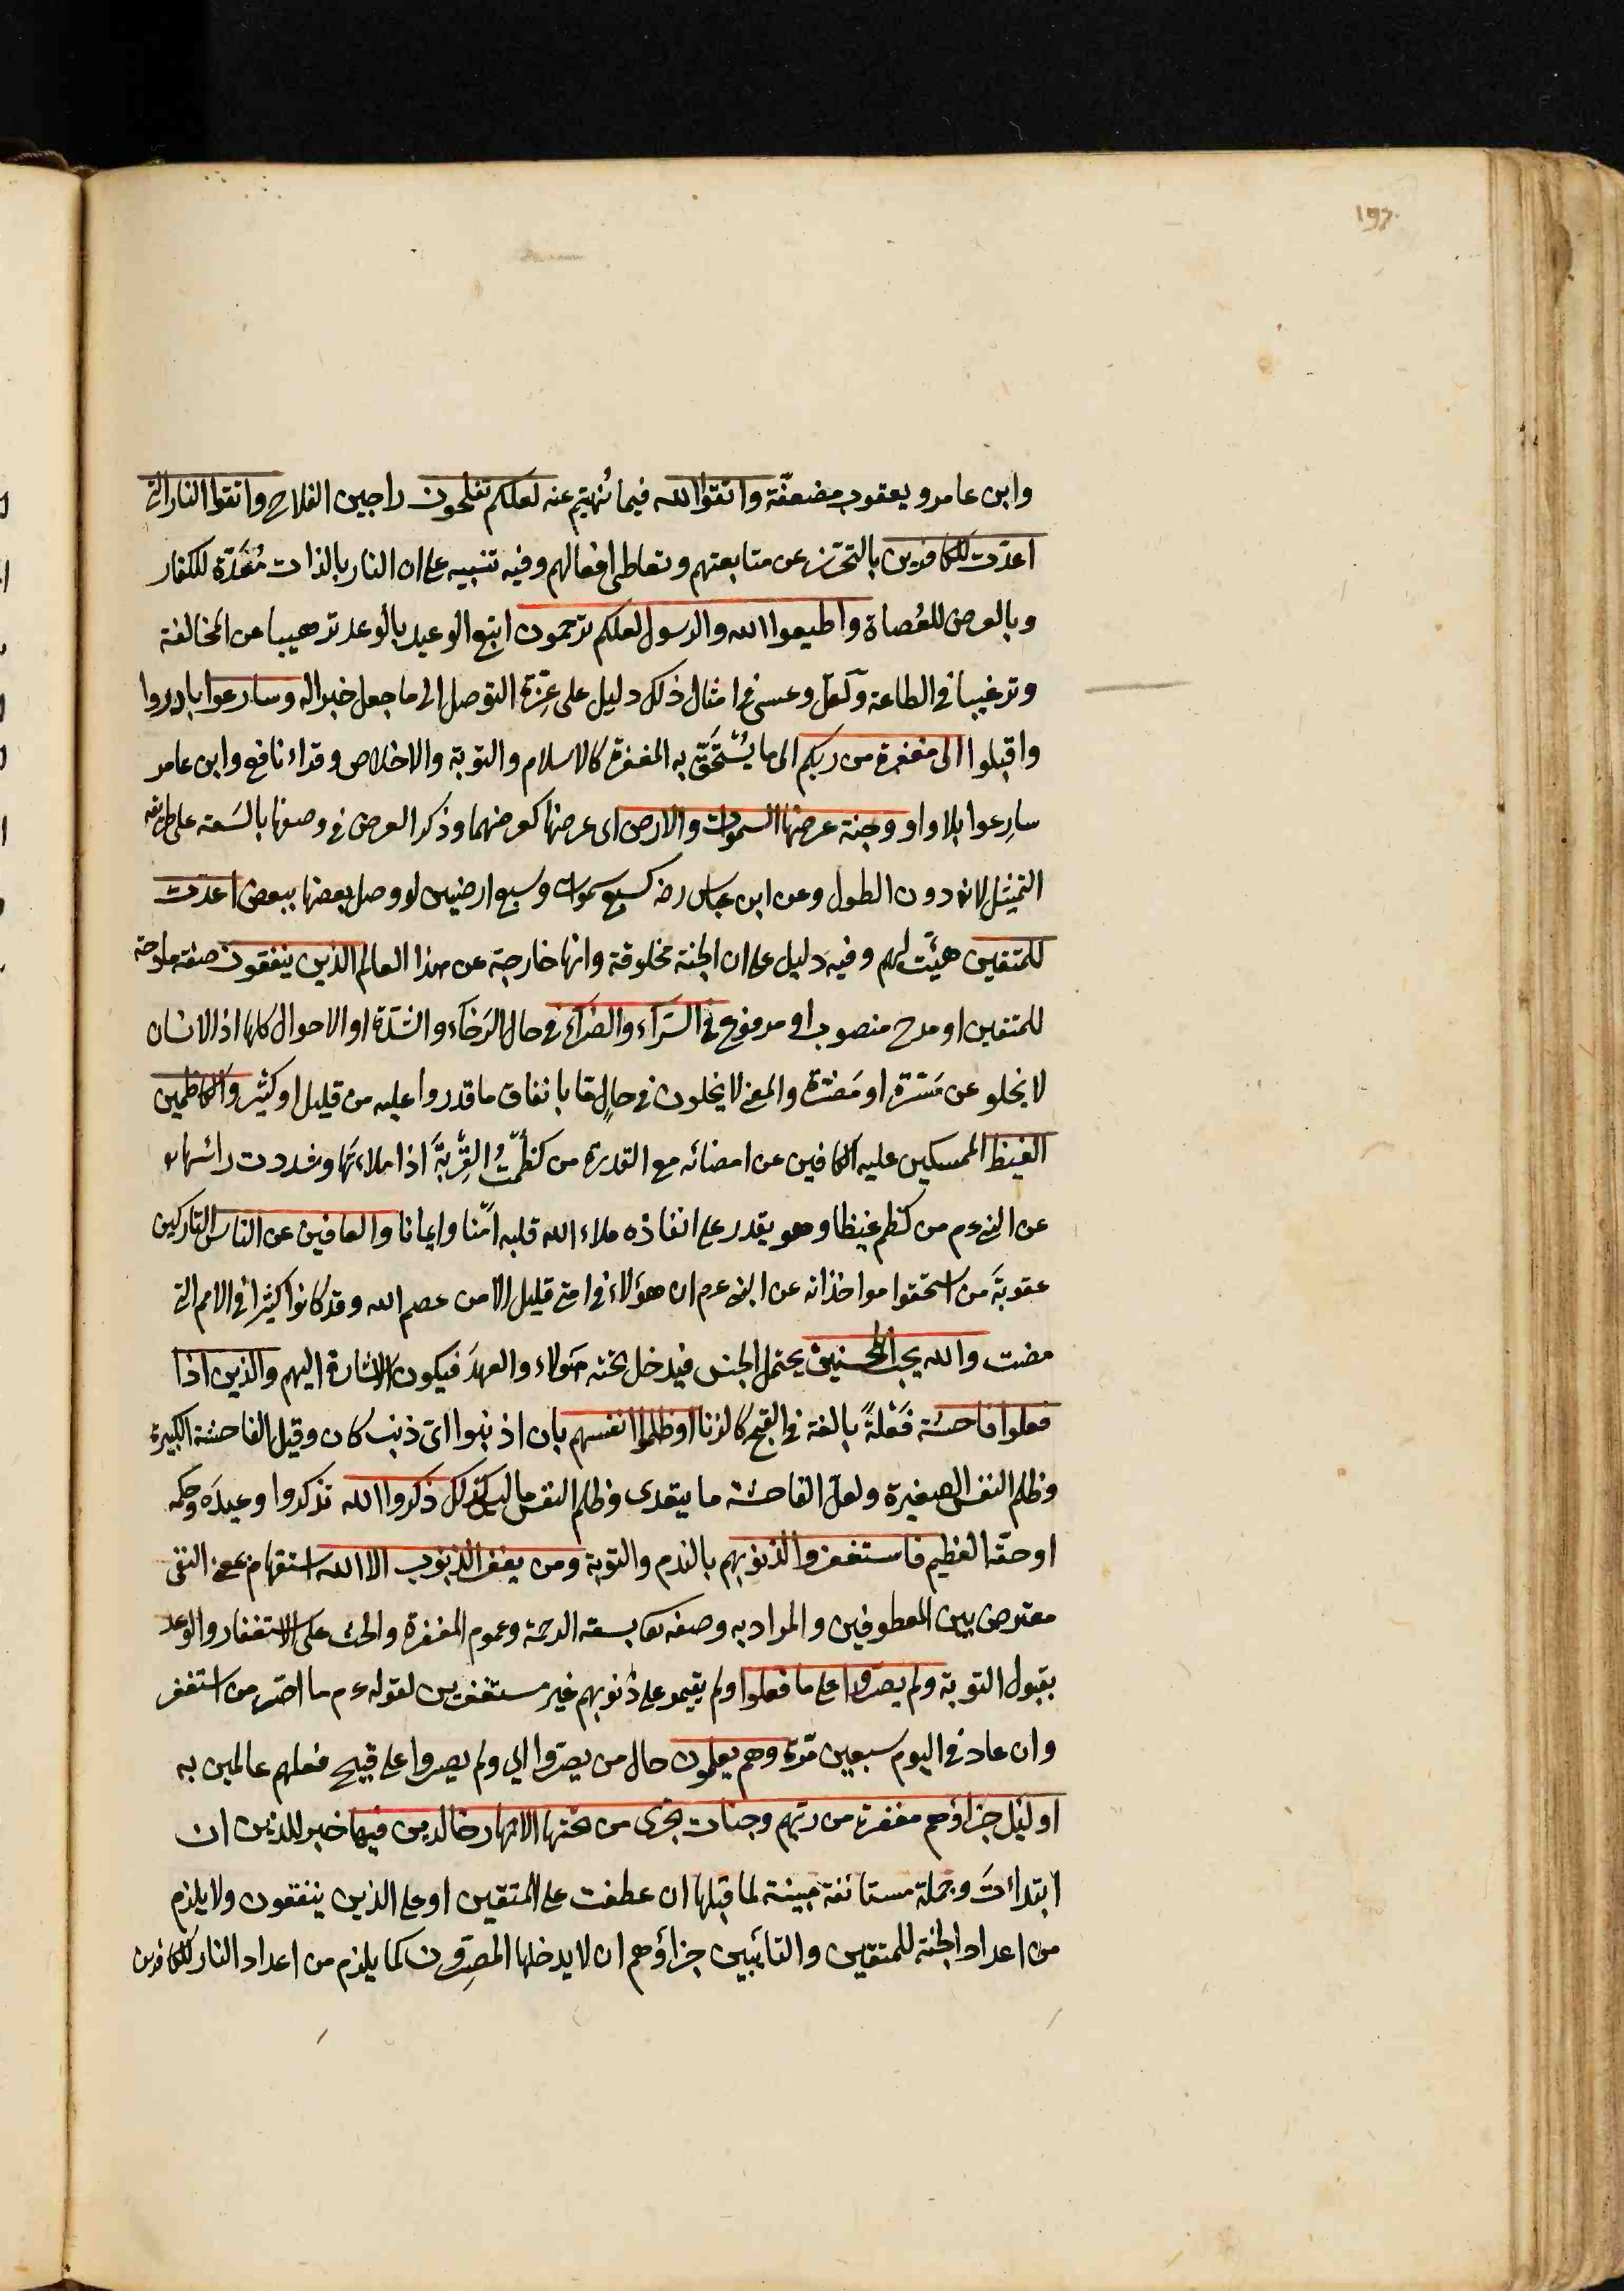 197
وابن عامر ويعقوب مضعفّة واتقوا الله فيما نُهيتم عنه لعلكم تفلحون راجين الفلاح واتقوا النار التي
اعدّت للكافرين بالتحرّز عن متابعتهم وتعاطي افعالهم وفيه تنبيه على ان النار بالذات مُعَدّة للكفار
وبالعرض للعُصاة واطيعوا الله والرسول لعلكم ترحمون اتبع الوعيد بالوعد ترهيبا عن المخالفة
وترغيبا في الطاعة ولعلّ وعسى في امثال ذلك دليل على عِزّة التوصل الى ما جعل خبرا له وسارعوا بادروا
واقبلوا الى مغفرة من ربكم الى ما يُسْتَحَقّ به المغفرة كالاسلام والتوبة والاخلاص وقراء نافع وابن عامر
سارِعوا بلا واو وجنة عرضها السموات والارض اى عرضها كعرضهما وذكر العرض في وصفها بالسَعة على طريقة
التمثيل لانه دون الطول وعن ابن عباس رضه كسبع سموات وسبع ارضين لو وصل بعضها ببعض اعدّت
للمتقين هيّئت لهم وفيه دليل على ان الجنة مخلوقة وانها خارجة عن هذا العالم الذين ينفقون صفة مادحة
للمتقين او مدح منصوب او مرفوع في السّرآء والضرّآء في حال الرَخآء والشدّة او الاحوال كلها اذ الانسان
لا يخلو عن مَسَرّة او مَضَرّة والمعنى لا يخلون في حالٍ مّا بانفاق ما قدروا عليه من قليل او كثير والكاظمين
الغيظ الممسكين عليه الكافين عن امضائه مع القدرة من كظَمْتُ القِرْبَةَ اذا ملاءتَها وشددت رائسها
عن النبي ءم من كظم غيظا وهو يقدر على انفاذه ملاء الله قلبه امنّا وايمانا والعافين عن الناس التاركين
عقوبَةَ من استحقوا مواخذته عن النبي ءم ان هؤلاء في امتى قليل الا من عصم الله وقد كانوا كثيرا في الامم التي
مضت والله يحب المحسنين يحتمل الجنس فيدخل تحته هؤلاء والعهدَ فيكون الاشارة اليهم والذين اذا
فعلوا فاحشة فَعْلةً بالغة في القبح كالزنا او ظلموا انفسهم بان اذنبوا ايّ ذنب كان وقيل الفاحشة الكبيرة
وظلم النفس الصغيرة ولعل الفاحشة ما يتعدى وظلم النفس ما ليس كذلك ذكروا الله تذكروا وعيدَه وحكمه
او حقّه العظيم فاستغفروا لذنوبهم بالندم والتوبة ومن يغفر الذنوب الا الله استفهام بمعنى النفى
معترض بين المعطوفين والمراد به وصفه تعا بسعة الرحمة وعموم المغفرة والحث على الاستغفار والوعد
بقبول التوبة ولم يصرّوا على ما فعلوا ولم يقيموا على ذنوبهم غير مستغفرين لقوله ءم ما اصّر من استغفر
وان عاد في اليوم سبعين مّرة وهم يعلمون حال من يصرّوا اي ولم يصروا على قبيح فعلهم عالمين به
اولئك جزاؤهم مغفرة من ربّهم وجنات تجرى من تحتها الانهار خالدين فيها خبر للذين ان
ابتدائتَ وجملة مستائفة مبينة لما قبلها ان عطفت على المتقين او على الذين ينفقون ولا يلزم
من اعداد الجنة للمتقين والتائبين جزاؤهم ان لا يدخلها المصِرّون كما يلزم من اعداد النار للكافرين